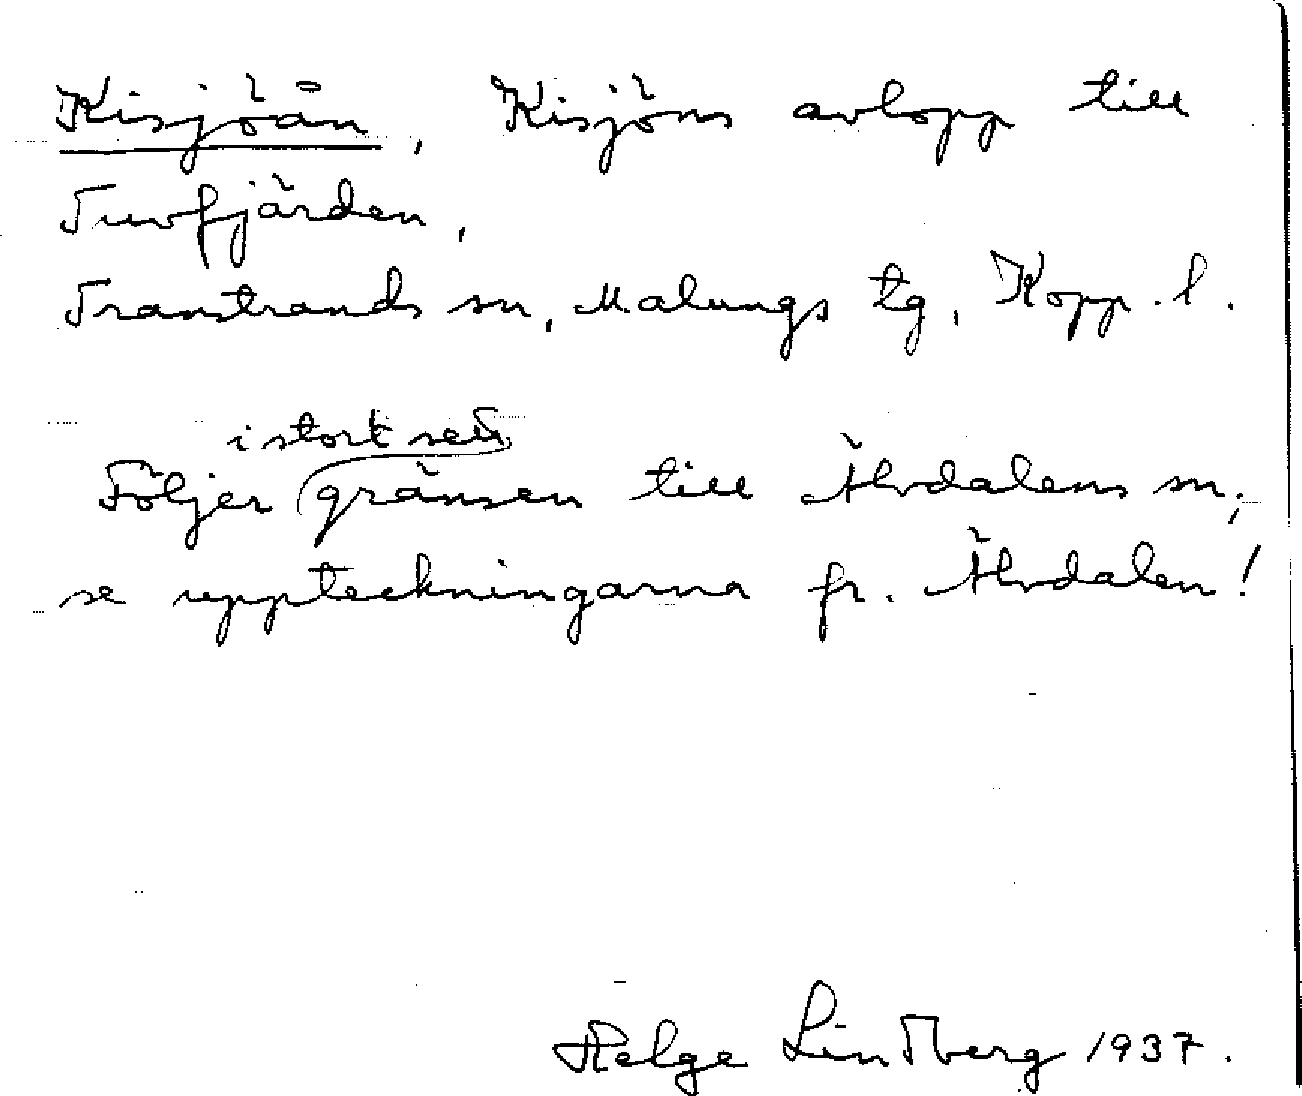 Kisjöån, Kisjöns avlopp till
Tuvfjärden,
Transtrands sn, Malungs tg, Kopp. l.
i stort sett
Följer gränsen till Älvdalens sn;
se uppteckningarna fr. Älvdalen!
Helge Lindberg 1937.